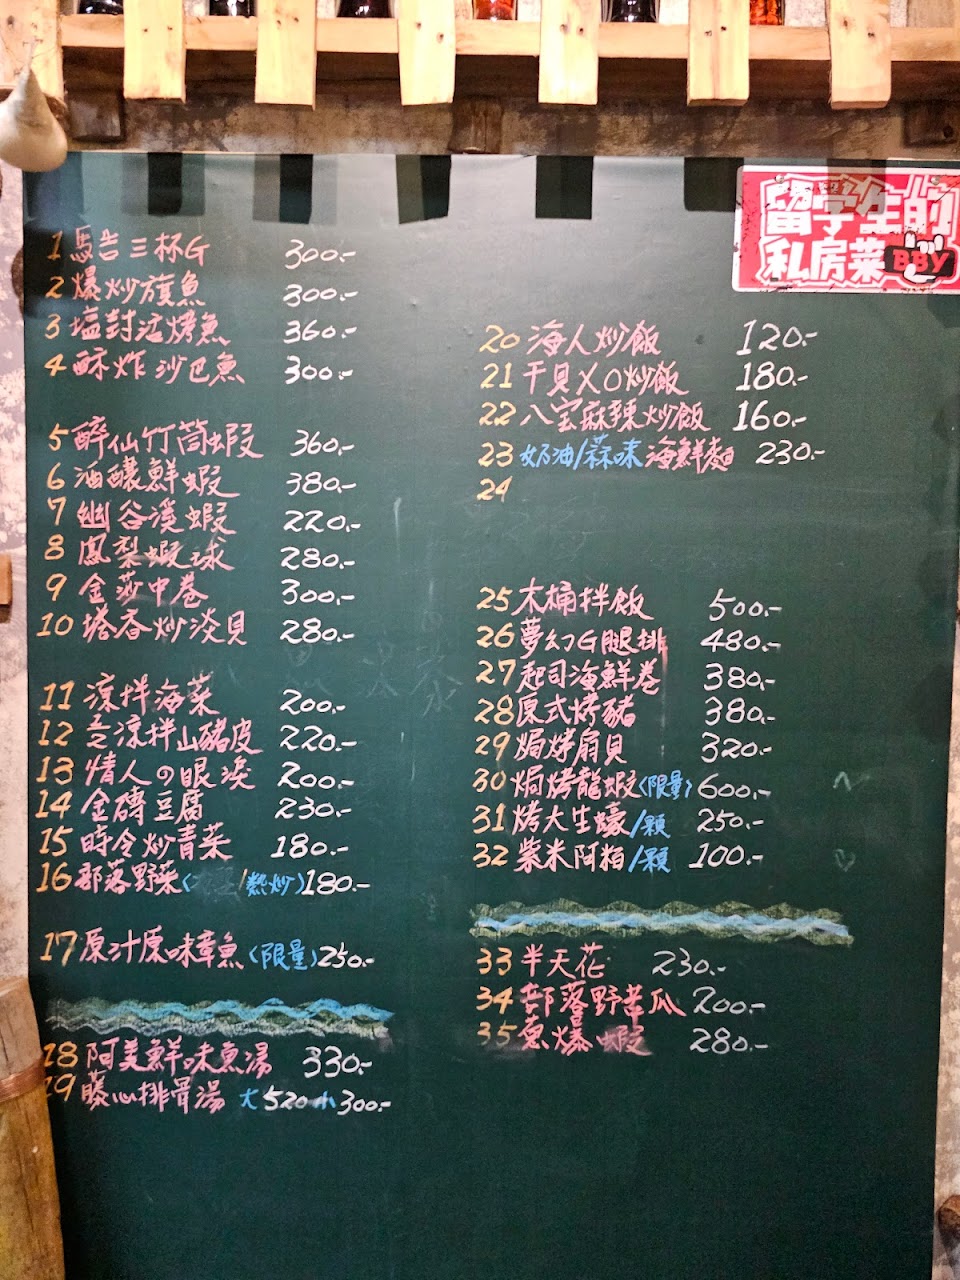 留学生的
私房菜 BBY
1 馬告三杯G 300.-
2 爆炒旗魚 300.-
3 塩封活烤魚 360.-
4 酥炸沙巴魚 300.-
5 醉仙竹筒蝦 360.-
6 酒釀鮮蝦 380.-
7 幽谷溪蝦 220.-
8 鳳梨蝦球 280.-
9 金莎中卷 300.-
10 塔香炒淡貝 280.-
11 涼拌海菜 200.-
12 涼拌山豬皮 220.-
13 情人の眼淚 200.-
14 金磚豆腐 230.-
15 時令炒青菜 180.-
16 部落野菜〈/熱炒〉180.-
17 原汁原味章魚〈限量〉250.-
18 阿美鮮味魚湯 330.-
19 藤心排骨湯 大520 小300.-
20 海人炒飯 120.-
21 干貝XO炒飯 180.-
22 八宝麻辣炒飯 160.-
23 奶油/蒜味海鮮麵 230.-
24
25 木桶拌飯 500.-
26 夢幻G腿排 480.-
27 起司海鮮卷 380.-
28 原式烤豬 380.-
29 焗烤扇貝 320.-
30 焗烤龍蝦〈限量〉600.-
31 烤大生蠔/顆 250.-
32 紫米阿粨/顆 100.-
33 半天花 230.-
34 部落野苦瓜 200.-
35 蔥爆蝦 280.-